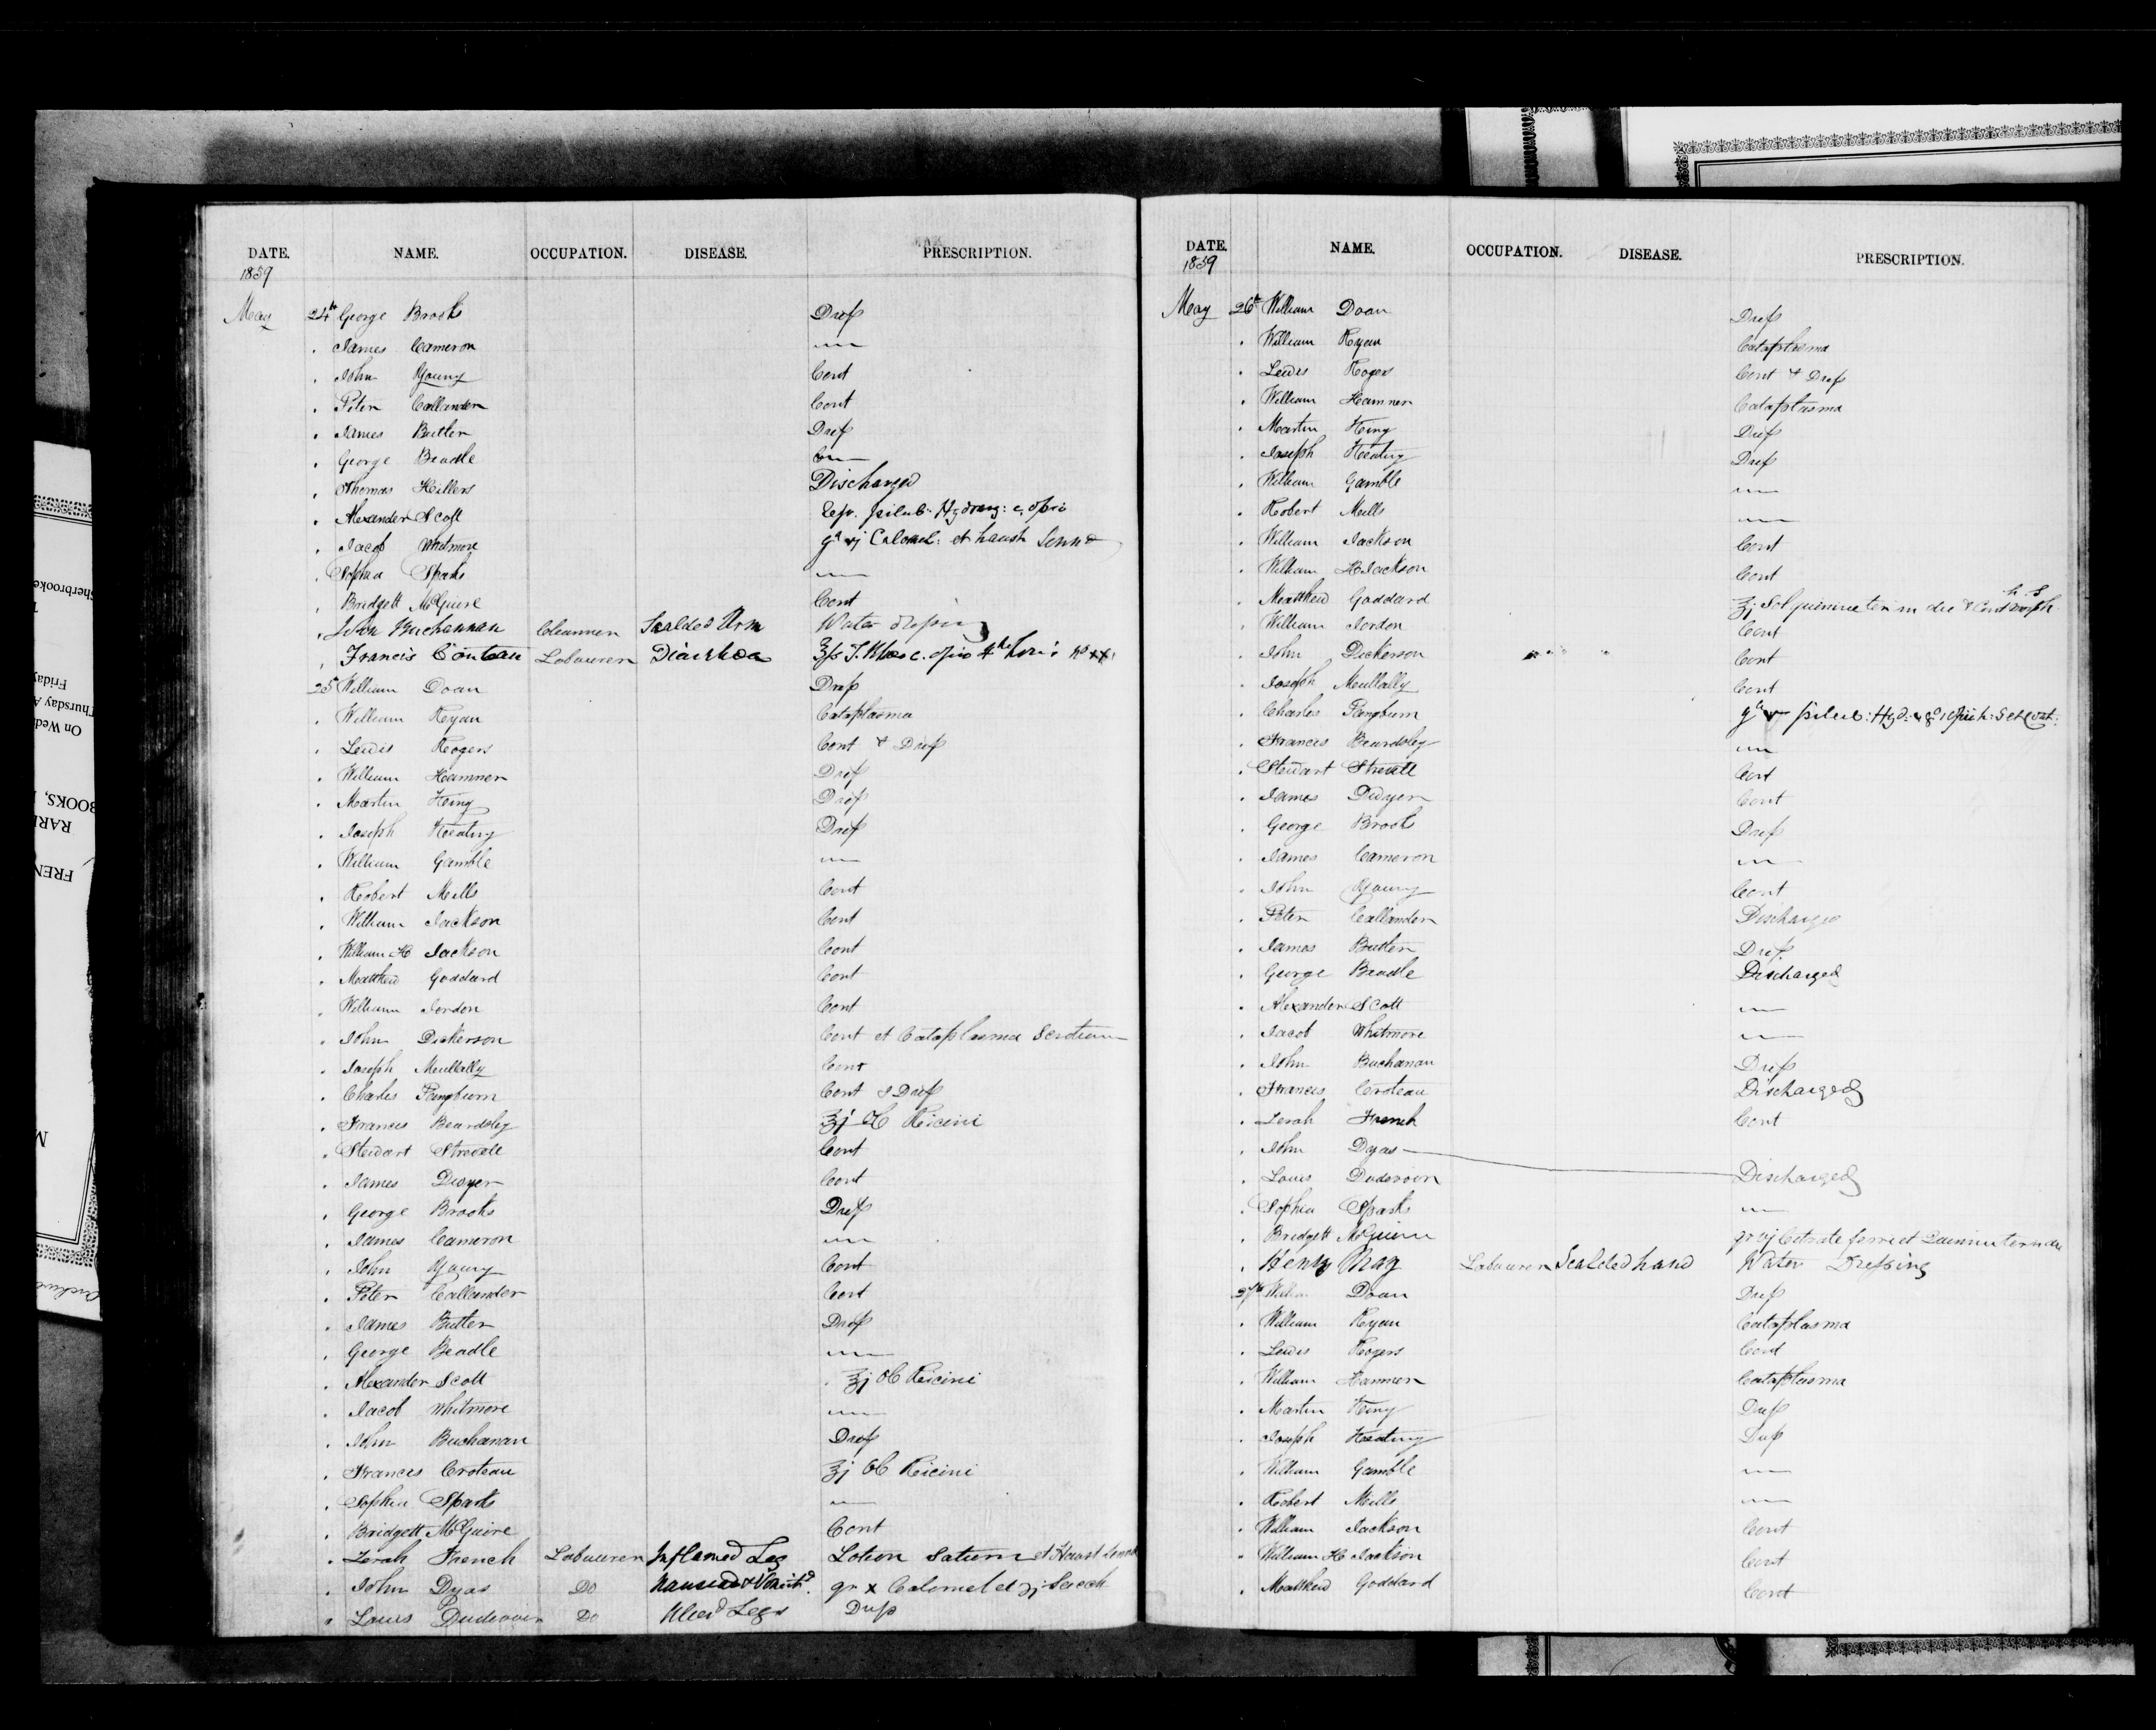 DATE. NAME. OCCUPATION. DISEASE. PRESCRIPTION.
1859
May 24th George Brooks Dress
" James Cameron
" John Young Cont
" Peter Callander Cont
" James Butler Dress
" George Beadle
" Thomas Hillers Discharged
" Alexander Scott pilul: Hydrarg: c opio
" Jacob Whitmore gr vj Calomel: et haust Senna
" Sophia Sparks
" Bridgett McGuire Cont
" John Buchannan Scalded Arm Water dressing
" Francis Labourer Diarrhoea
25 William Doan Dress
" William Ryan Cataplasma
" Lewis Rogers Cont & Dress
" William Hamner Dress
" Martin King Dress
" Joseph Keating Dress
" William Gamble
" Robert Mills Cont
" William Jackson Cont
" William H Jackson Cont
" Matthew Goddard Cont
" William Jordon Cont
" John Dickerson Cont et Cataplasma Scrotum
" Joseph Mullally Cont
" Charles Pangburn Cont & Dress
" Francis Beardsley ℥j Ol Ricini
" Stewart Strevell Cont
" James Dwyer Cont
" George Brooks Dress
" James Cameron
" John Young Cont
" Peter Callander Cont
" James Butler Dress
" George Beadle
" Alexander Scott ℥j Ol Ricini
" Jacob Whitmore
" John Buchanan Dress
" Francis Croteau ℥j Ol Ricini
" Sophia Sparks
" Bridgett McGuire Cont
" Zerah French Labourer Inflamed Leg Lotion Saturn et Haust Senna
" John Dyas Do gr x Calomel et
" Louis Do Ulcd Legs Dress
DATE. NAME. OCCUPATION. DISEASE. PRESCRIPTION.
1859
May 26th William Doan Dress
" William Ryan Cataplasma
" Lewis Rogers Cont & Dress
" William Hamner Cataplasma
" Martin King Dress
" Joseph Keating Dress
" William Gamble
" Robert Mills
" William Jackson Cont
" William H Jackson Cont
" Matthew Goddard h.s
" William Jordon Cont
" John Dickerson Cont
" Joseph Mullally Cont
" Charles Pangburn
" Francis Beardsley
" Stewart Strevell Cont
" James Dwyer Cont
" George Brooks Dress
" James Cameron
" John Young Cont
" Peter Callander Discharged
" James Butler Dress
" George Beadle Discharged
" Alexander Scott
" Jacob Whitmore
" John Buchanan Dress
" Francis Croteau Discharged
" Zerah French Cont
" John Dyas
" Louis Discharged
" Sophia Sparks
" Bridgett McGuire
" Henry May Labourer Scalded hand Water Dressing
27th William Doan Dress
" William Ryan Cataplasma
" Lewis Rogers Cont
" William Hamner Cataplasma
" Martin King Dress
" Joseph Keating Dress
" William Gamble
" Robert Mills
" William Jackson Cont
" William H Jackson Cont
" Matthew Goddard Cont
Sherbrooke
Friday
Thursday
On Wed
BOOKS,
RAR
FREN
M